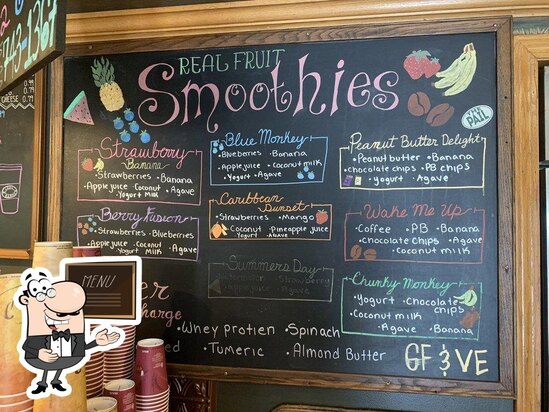 743-1367
CHEESE 0.99
0.99
REAL FRUIT
Smoothies
THE PAIL
Strawberry
Banana
• Strawberries • Banana
Apple juice • Coconut • Agave
• Yogurt Milk
Berry Fusion
• Strawberries • Blueberries
Apple juice • Coconut • Agave
• Yogurt Milk
Blue Monkey
• Blueberries • Banana
• Apple juice • Coconut milk
• Yogurt • Agave
Caribbean
Sunset
• Strawberries • Mango
• Coconut • Pineapple juice
Yogurt • Agave
Summers Day
Strawberry
• Agave
Peanut Butter Delight
• Peanut butter • Banana
• chocolate chips • PB chips
• yogurt • Agave
Wake Me Up
• Coffee • PB • Banana
• Chocolate chips • Agave
• Coconut milk
Chunky Monkey
• Yogurt • Chocolate
chips
• Coconut milk
• Agave • Banana
• Whey protien • Spinach
• Tumeric • Almond Butter
GF & VE
MENU